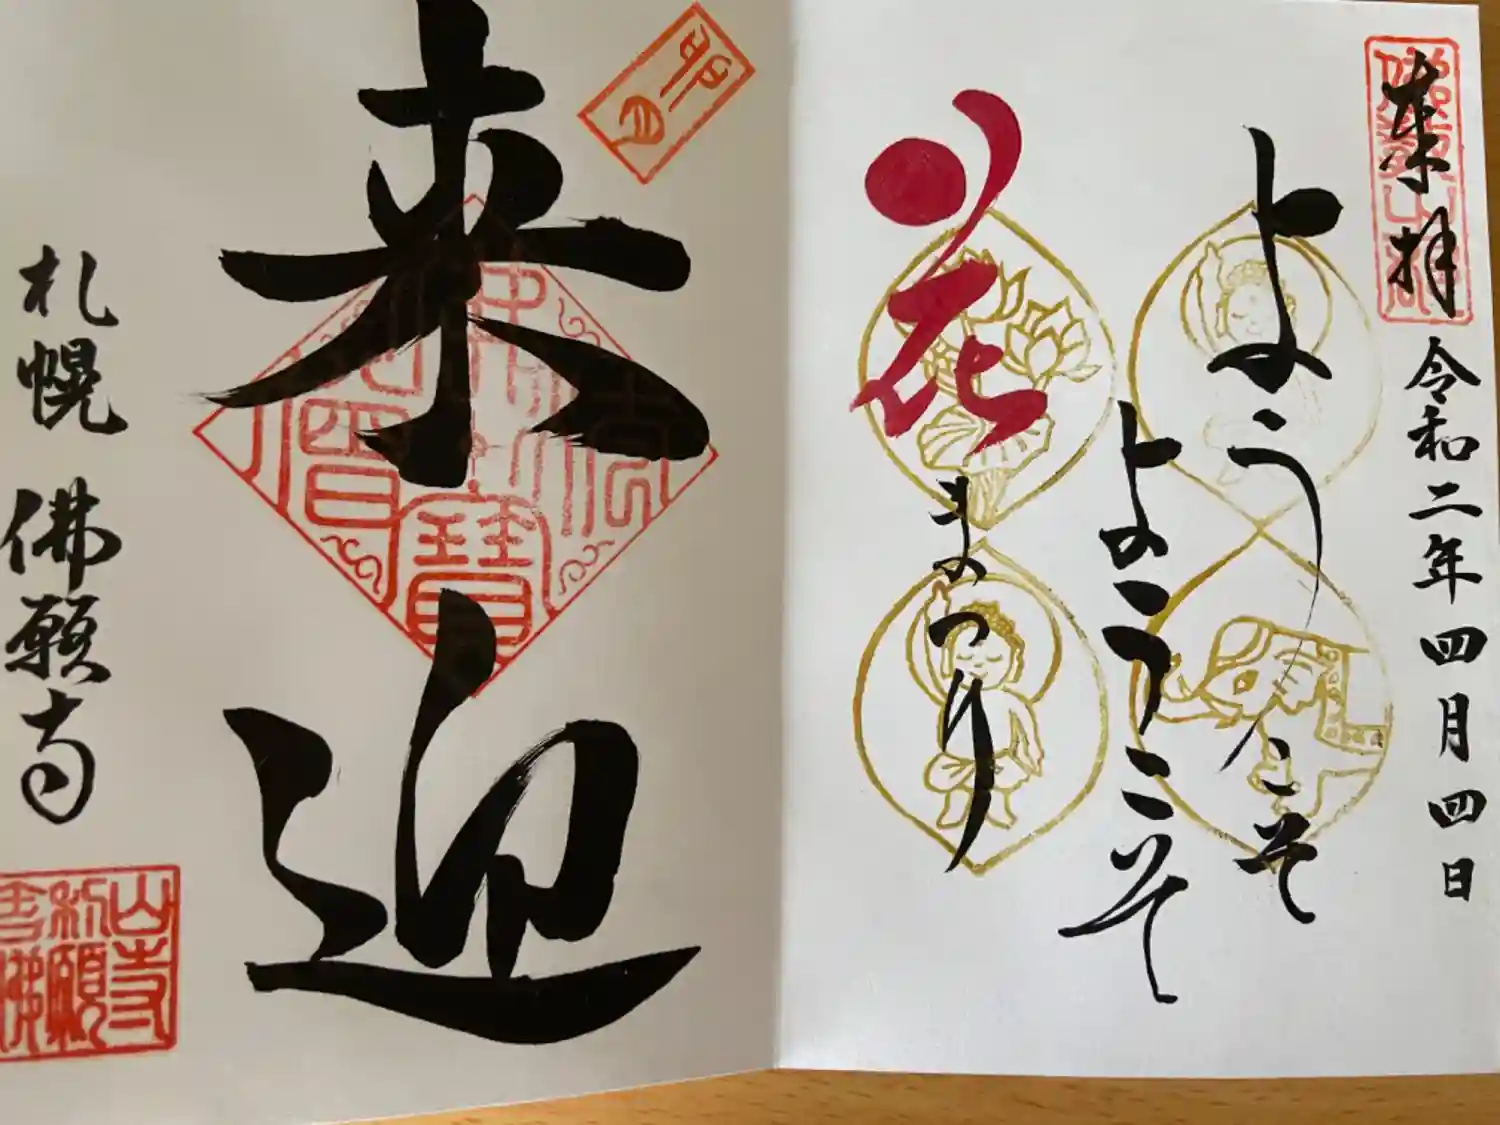 来拝 令和二年四月四日
ようこそ
ようこそ
花まつり
卯月
来迎
佛法僧寶
札幌 佛願寺